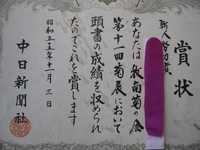 賞状
新人努力賞
あなたは秋南菊の会
第十一回菊展において
頭書の成績を収められ
たのでこれを賞します
昭和五十五年十一月三日
中日新聞社